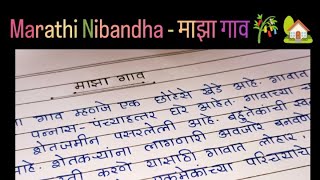 Marathi Nibandha - माझा गाव 🎋🏡
माझा गाव
गाव म्हणजे एक छोटेसे खेडे आहे. गावात
पन्नास- पंच्याहत्तर घरे आहेत. गावाच्या
शेतजमीन, पसरलेली आहे. बहुतेकांची
आहे. शेतकऱ्यांना लागणारी अवजारे बनवण
करणे यासाठी गावात लोहार,
एकमेकांच्या परिचयाचे